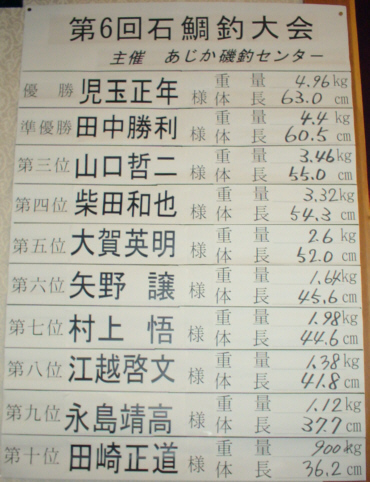 第6回石鯛釣大会
主催 あじか磯釣センター
優勝 児玉正年 様 重量 4.96kg
体長 63.0 cm
準優勝 田中勝利 様 重量 4.4kg
体長 60.5 cm
第三位 山口哲二 様 重量 3.46kg
体長 55.0 cm
第四位 柴田和也 様 重量 3.32kg
体長 54.3 cm
第五位 大賀英明 様 重量 2.6kg
体長 52.0 cm
第六位 矢野 譲 様 重量 1.64kg
体長 45.6 cm
第七位 村上 悟 様 重量 1.98kg
体長 44.6 cm
第八位 江越啓文 様 重量 1.38kg
体長 41.8 cm
第九位 永島靖高 様 重量 1.12kg
体長 37.7 cm
第十位 田崎正道 様 重量 900kg
体長 36.2 cm